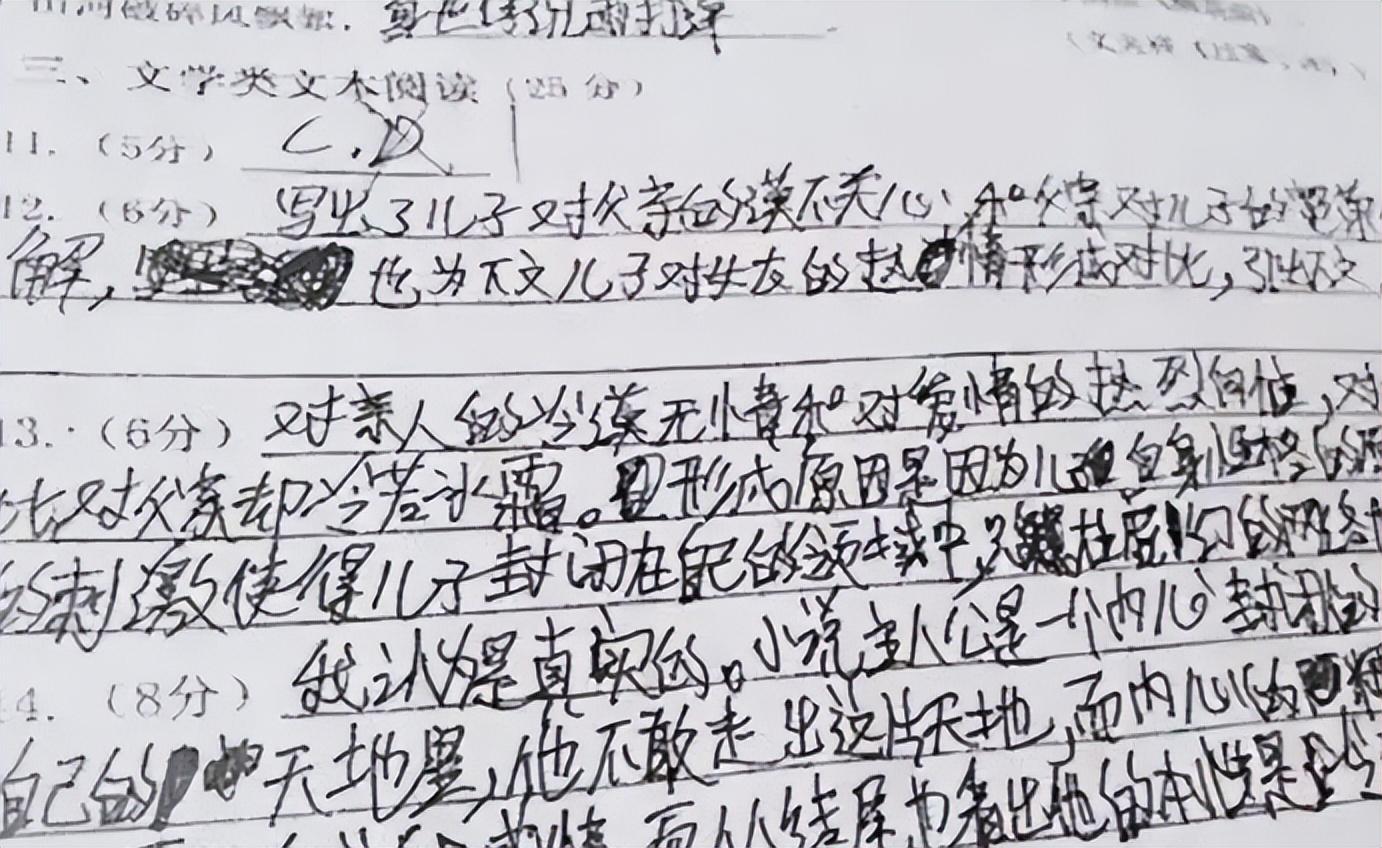 山河破碎风飘絮,身世浮沉雨打萍
三、文学类文本阅读(25分)
11.(5分) C.D
12.(6分) 写出了儿子对父亲的漠不关心,和父亲对儿子的
解, 也为下文儿子对女友的热情形成对比,引出下文
13.(6分) 对亲人的冷漠无情和对爱情的热烈向往,对
比对父亲却冷若冰霜。形成原因是因为儿子自身性格的
的刺激使得儿子封闭在自己的领域中,只 在虚幻的网络
14.(8分) 我认为是真实的。小说主人公是一个内心封闭的
自己的 天地里,他不敢走出这片天地,而内心的
而从结尾也看出他的本性是